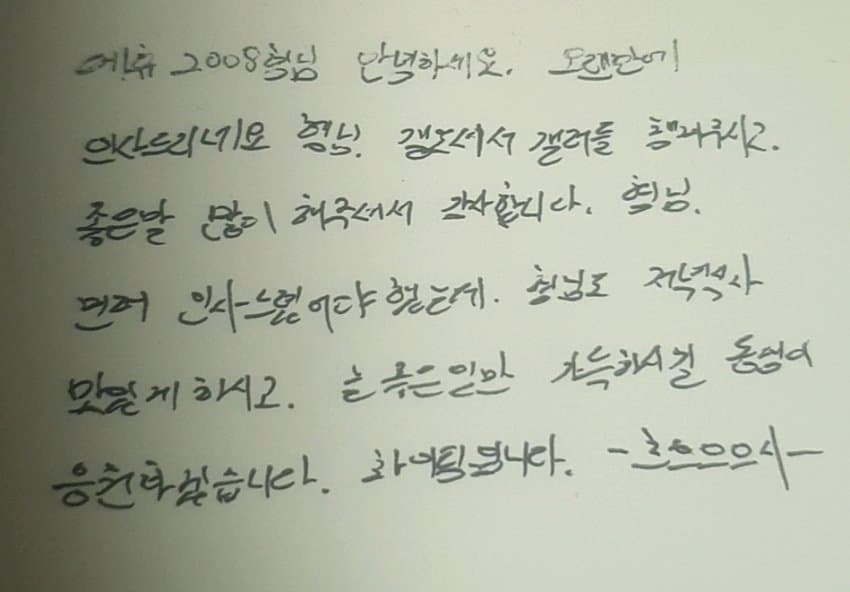 2008형님 안녕하세요. 오랜만에
인사드리네요 형님. 갤로서 갤러들 챙겨주시고.
좋은말 많이 해주셔서 감사합니다. 형님.
먼저 인사드렸어야 했는데. 형님도 저녁식사
맛있게 하시고. 늘 좋은일만 가득하시길 동생이
응원하겠습니다. 화이팅입니다.